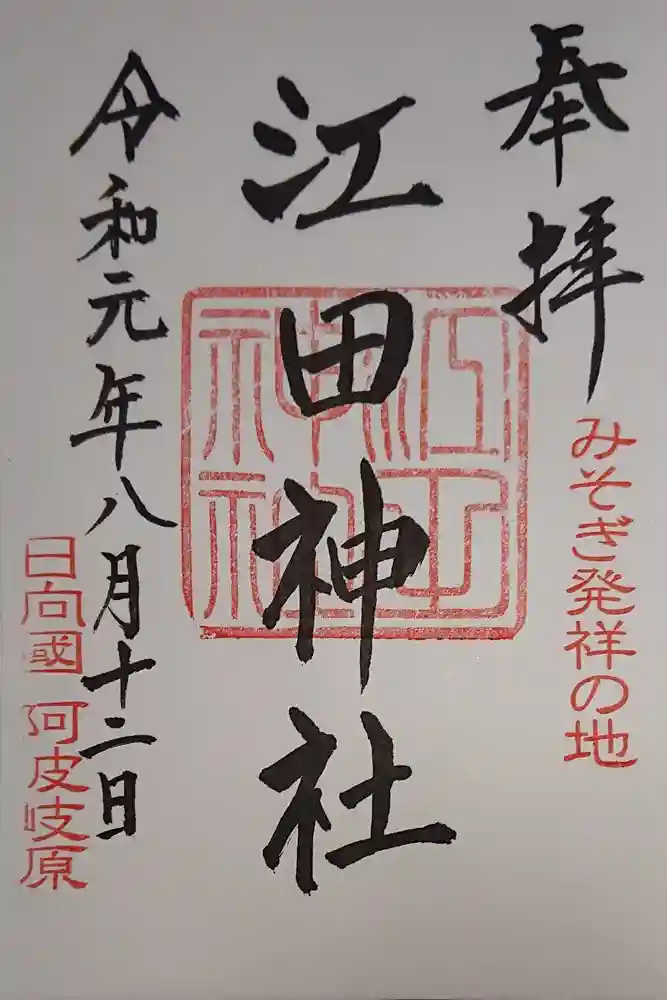 奉拝
みそぎ発祥の地
江田神社
江田神社
令和元年八月十二日
日向國 阿皮岐原